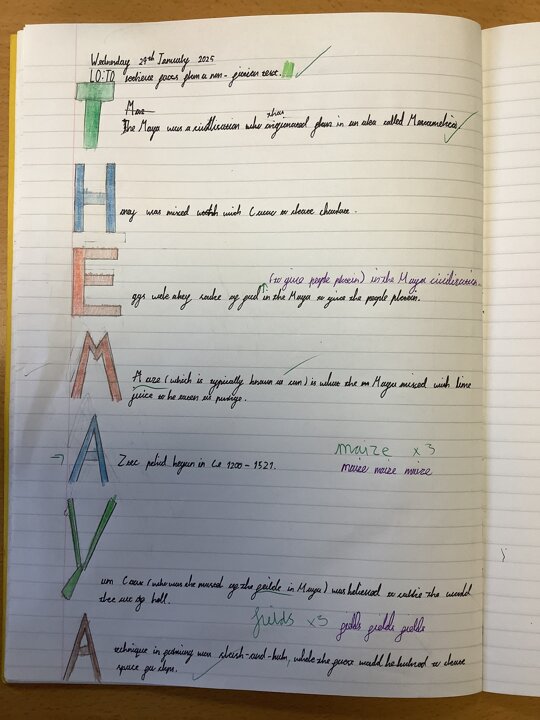 Wednesday 29th January 2025
LO: TO retrieve facts from a non-fiction text.
Mae
The Maya was a civilization who originated from in an area called Mesoamerica.
Honey was mixed with Cacao to create chocolate.
(to give people protein) in the Maya civilization.
Eggs were a key source of food in the Maya to give the people protein.
Maize (which is typically known as corn) is what the Maya mixed with lime
juice to be eaten as porridge.
Aztec period began in Ce 1200 - 1521.
maize x3
maize maize maize
Yum Caax (who was the of the in Maya) was believed to the world
tree out of hell.
fields x3
A technique in farming was slash-and-burn, where the forest would be burned to create
space for crops.